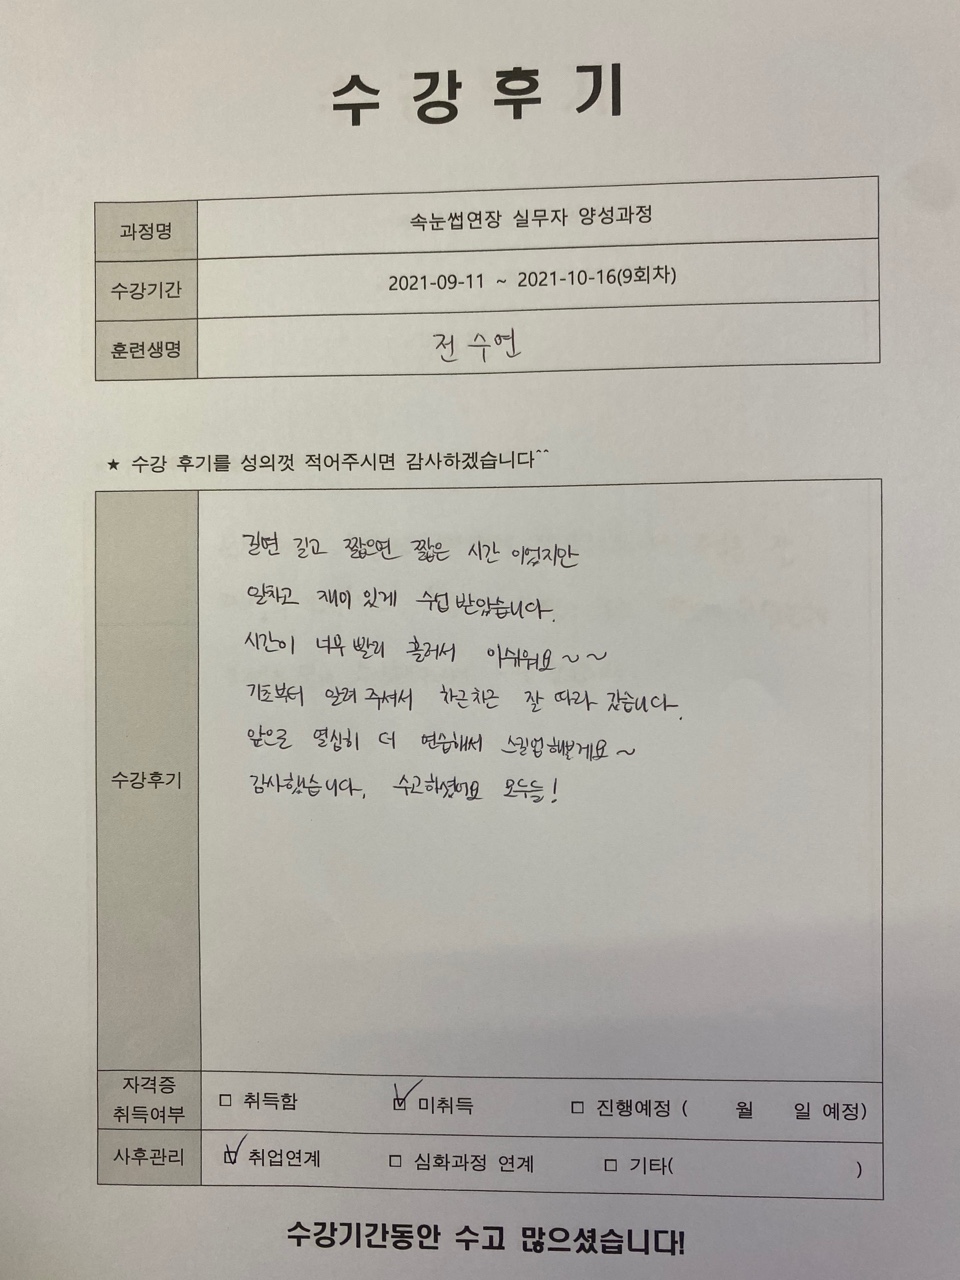 수 강 후 기
과정명 속눈썹연장 실무자 양성과정
수강기간 2021-09-11 ~ 2021-10-16(9회차)
훈련생명 전 수연
★ 수강 후기를 성의껏 적어주시면 감사하겠습니다^^
길면 길고 짧으면 짧은 시간 이었지만
알차고 재미 있게 수업 받았습니다.
시간이 너무 빨리 흘러서 아쉬워요~~
기초부터 알려 주셔서 차근차근 잘 따라 갔습니다.
앞으로 열심히 더 연습해서 스킬업 해볼게요~
감사했습니다. 수고하셨어요 모두들!
수강후기
자격증
취득여부 □ 취득함 ☑ 미취득 □ 진행예정 ( 월 일 예정)
사후관리 ☑ 취업연계 □ 심화과정 연계 □ 기타( )
수강기간동안 수고 많으셨습니다!